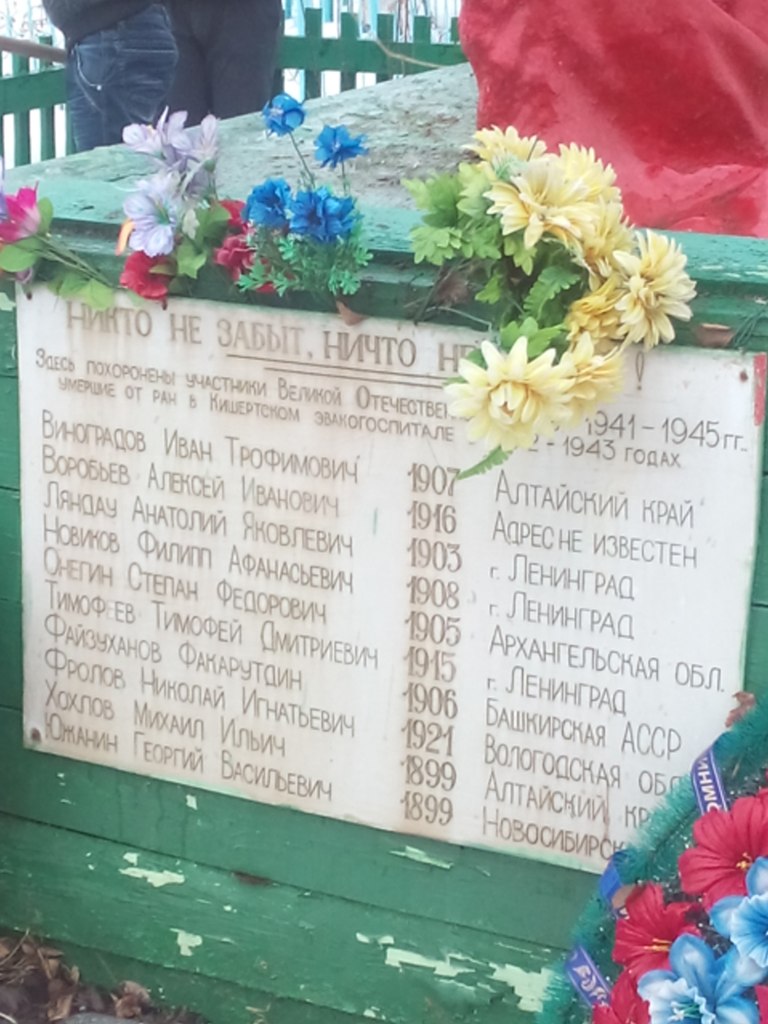 НИКТО НЕ ЗАБЫТ, НИЧТО !
ЗДЕСЬ ПОХОРОНЕНЫ УЧАСТНИКИ ВЕЛИКОЙ 1941-1945 гг.
УМЕРШИЕ ОТ РАН В КИШЕРТСКОМ ЭВАКОГОСПИТАЛЕ - 1943 ГОДАХ
ВИНОГРАДОВ ИВАН ТРОФИМОВИЧ 1907 АЛТАЙСКИЙ КРАЙ
ВОРОБЬЕВ АЛЕКСЕЙ ИВАНОВИЧ 1916 АДРЕС НЕ ИЗВЕСТЕН
ЛЯНДАУ АНАТОЛИЙ ЯКОВЛЕВИЧ 1903 г. ЛЕНИНГРАД
НОВИКОВ ФИЛИПП АФАНАСЬЕВИЧ 1908 г. ЛЕНИНГРАД
ОНЕГИН СТЕПАН ФЕДОРОВИЧ 1905 АРХАНГЕЛЬСКАЯ ОБЛ.
ТИМОФЕЕВ ТИМОФЕЙ ДМИТРИЕВИЧ 1915 г. ЛЕНИНГРАД
ФАЙЗУХАНОВ ФАКАРУТДИН 1906 БАШКИРСКАЯ АССР
ФРОЛОВ НИКОЛАЙ ИГНАТЬЕВИЧ 1921 ВОЛОГОДСКАЯ ОБЛ
ХОХЛОВ МИХАИЛ ИЛЬИЧ 1899 АЛТАЙСКИЙ КР
ЮЖАНИН ГЕОРГИЙ ВАСИЛЬЕВИЧ 1899 НОВОСИБИРСК